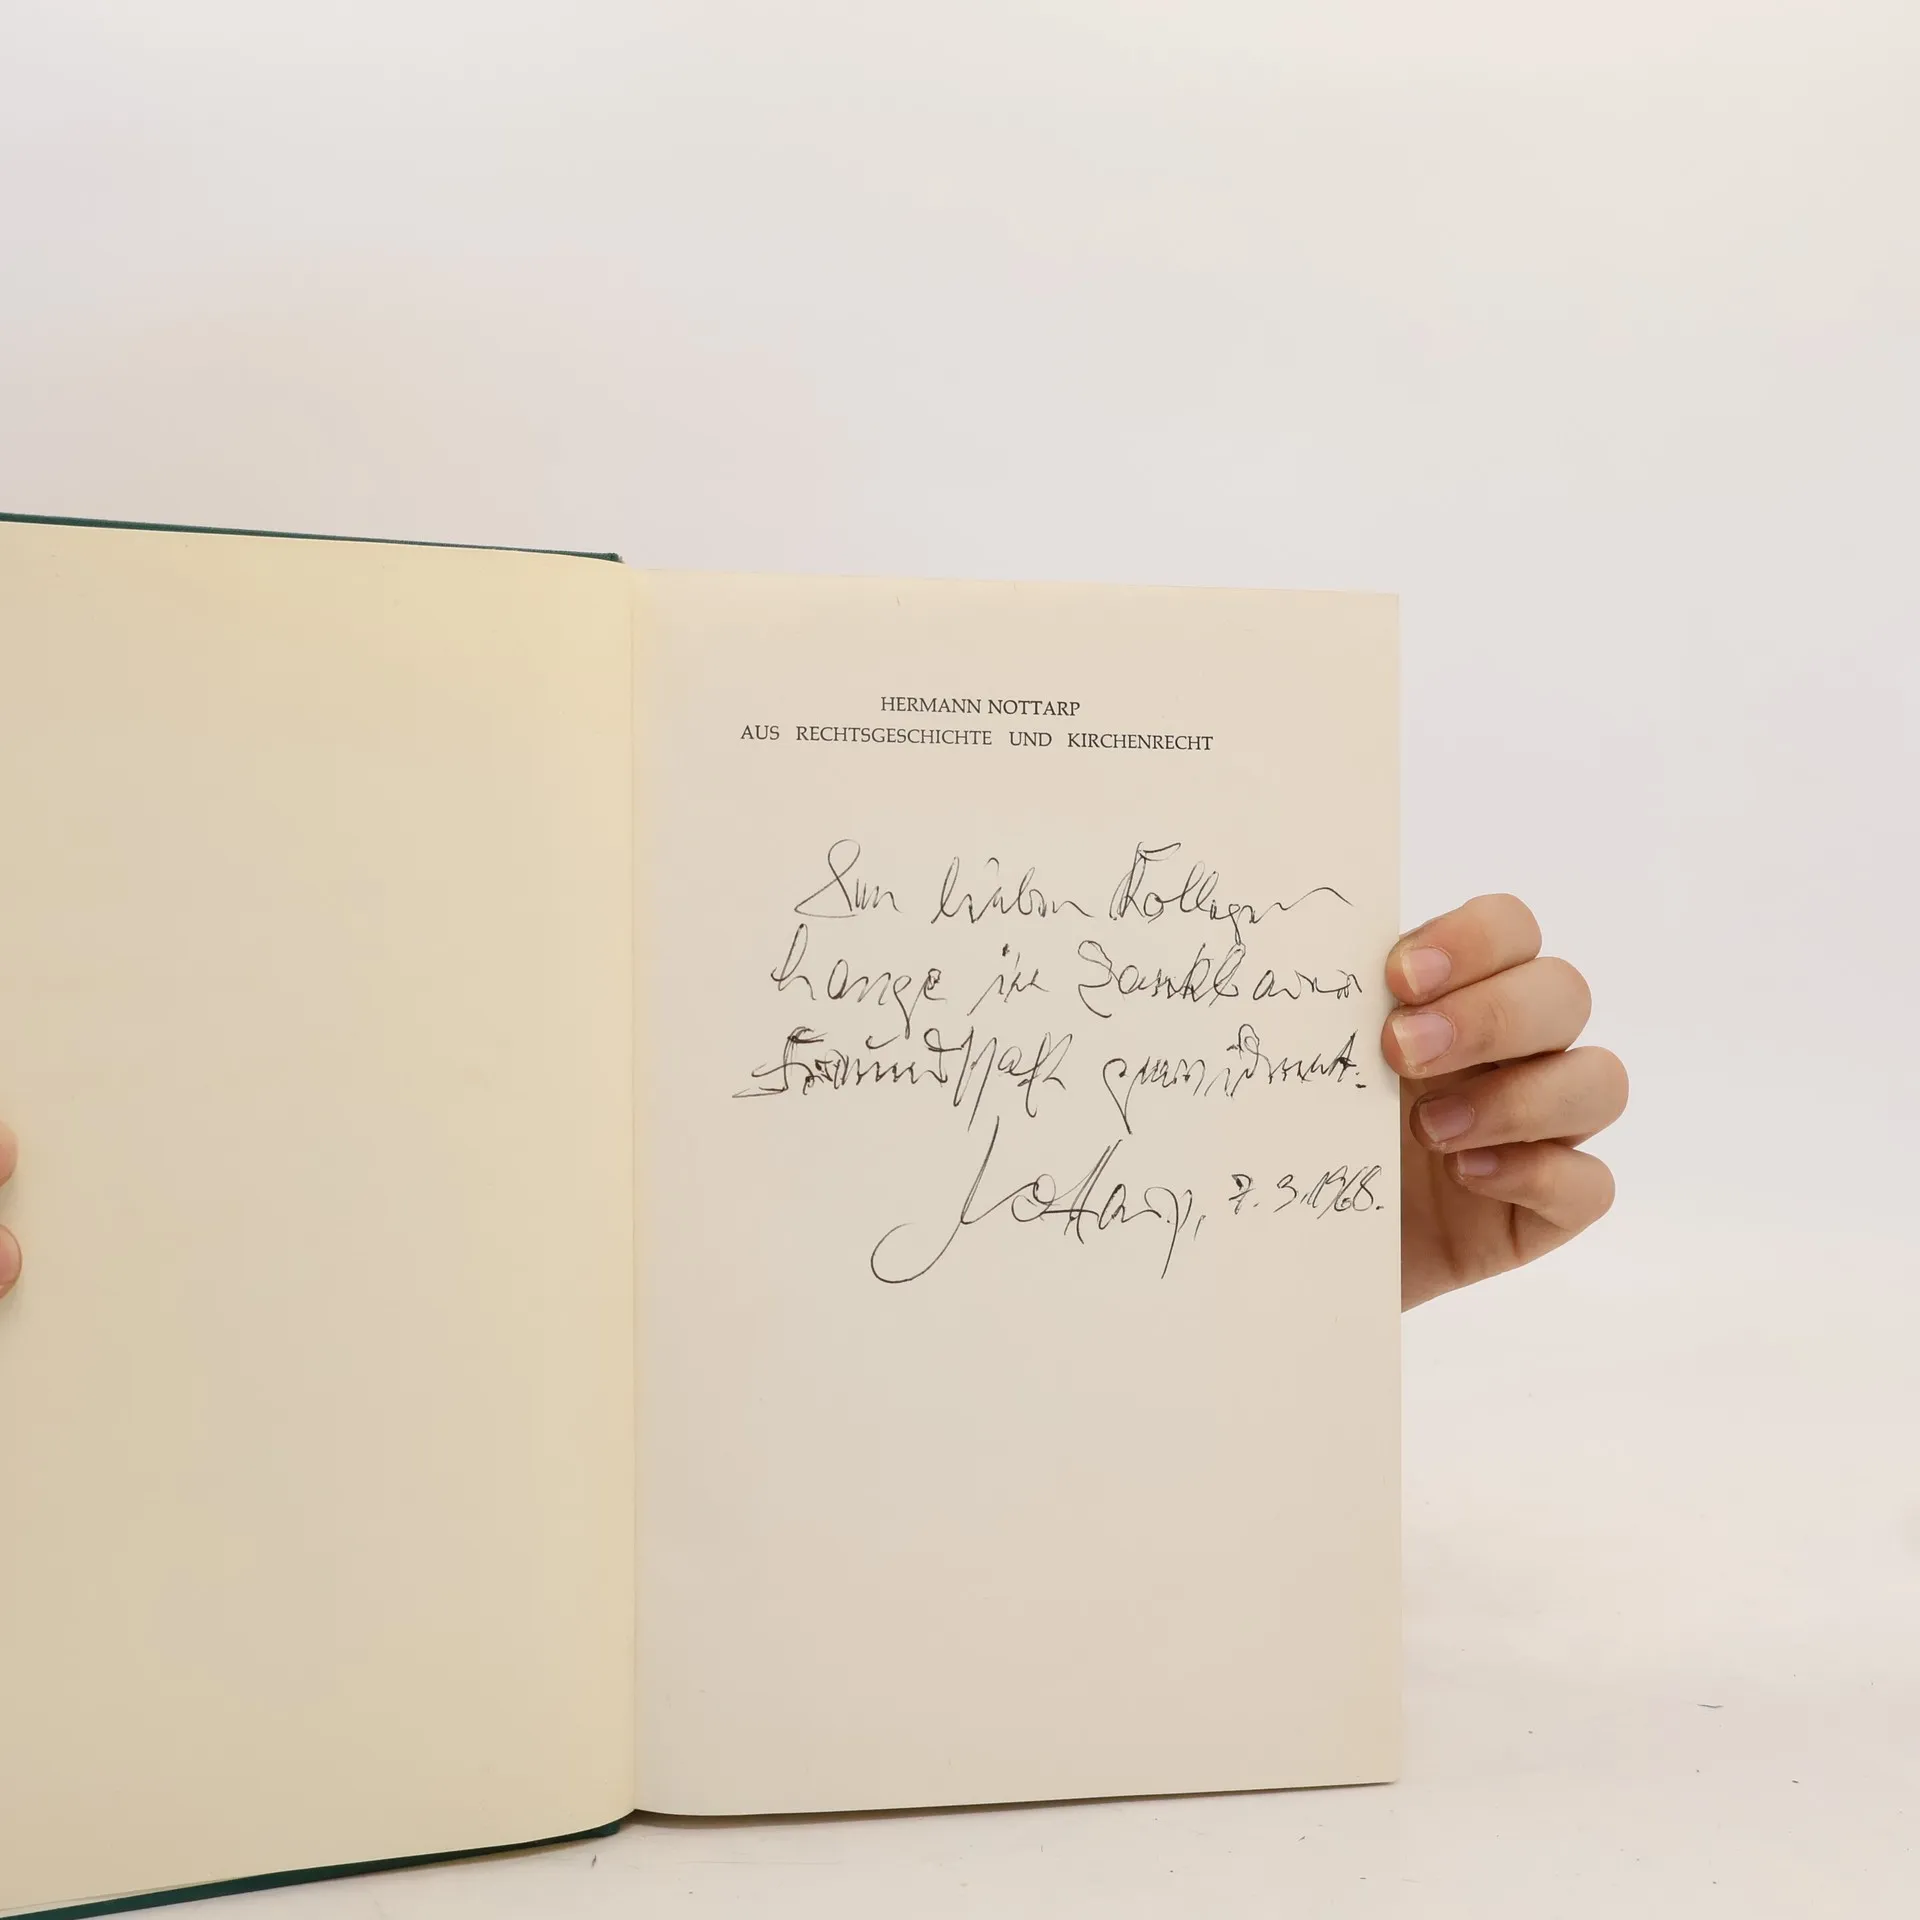 HERMANN NOTTARP
AUS RECHTSGESCHICHTE UND KIRCHENRECHT
lieben Kollegen
Lange in dankbarer
Freundschaft gewidmet.
Nottarp, 7. 3. 1968.